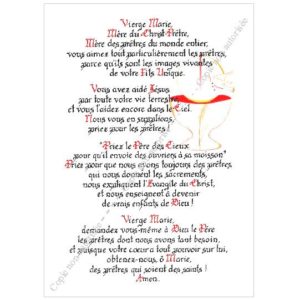 Vierge Marie,
Mère du Christ-Prêtre,
Mère des prêtres du monde entier,
vous aimez tout particulièrement les prêtres,
parce qu'ils sont les images vivantes
de votre Fils Unique.
Vous avez aidé Jésus
par toute votre vie terrestre,
et vous l'aidez encore dans le Ciel.
Nous vous en supplions,
priez pour les prêtres !
"Priez le Père des Cieux
pour qu'il envoie des ouvriers à sa moisson"
Priez pour que nous ayons toujours des prêtres
qui nous donnent les sacrements,
nous expliquent l'Evangile du Christ,
et nous enseignent à devenir
de vrais enfants de Dieu !
Vierge Marie,
demandez vous-même à Dieu le Père
les prêtres dont nous avons tant besoin,
et puisque votre cœur a tout pouvoir sur lui,
obtenez-nous, ô Marie,
des prêtres qui soient des saints !
Amen.